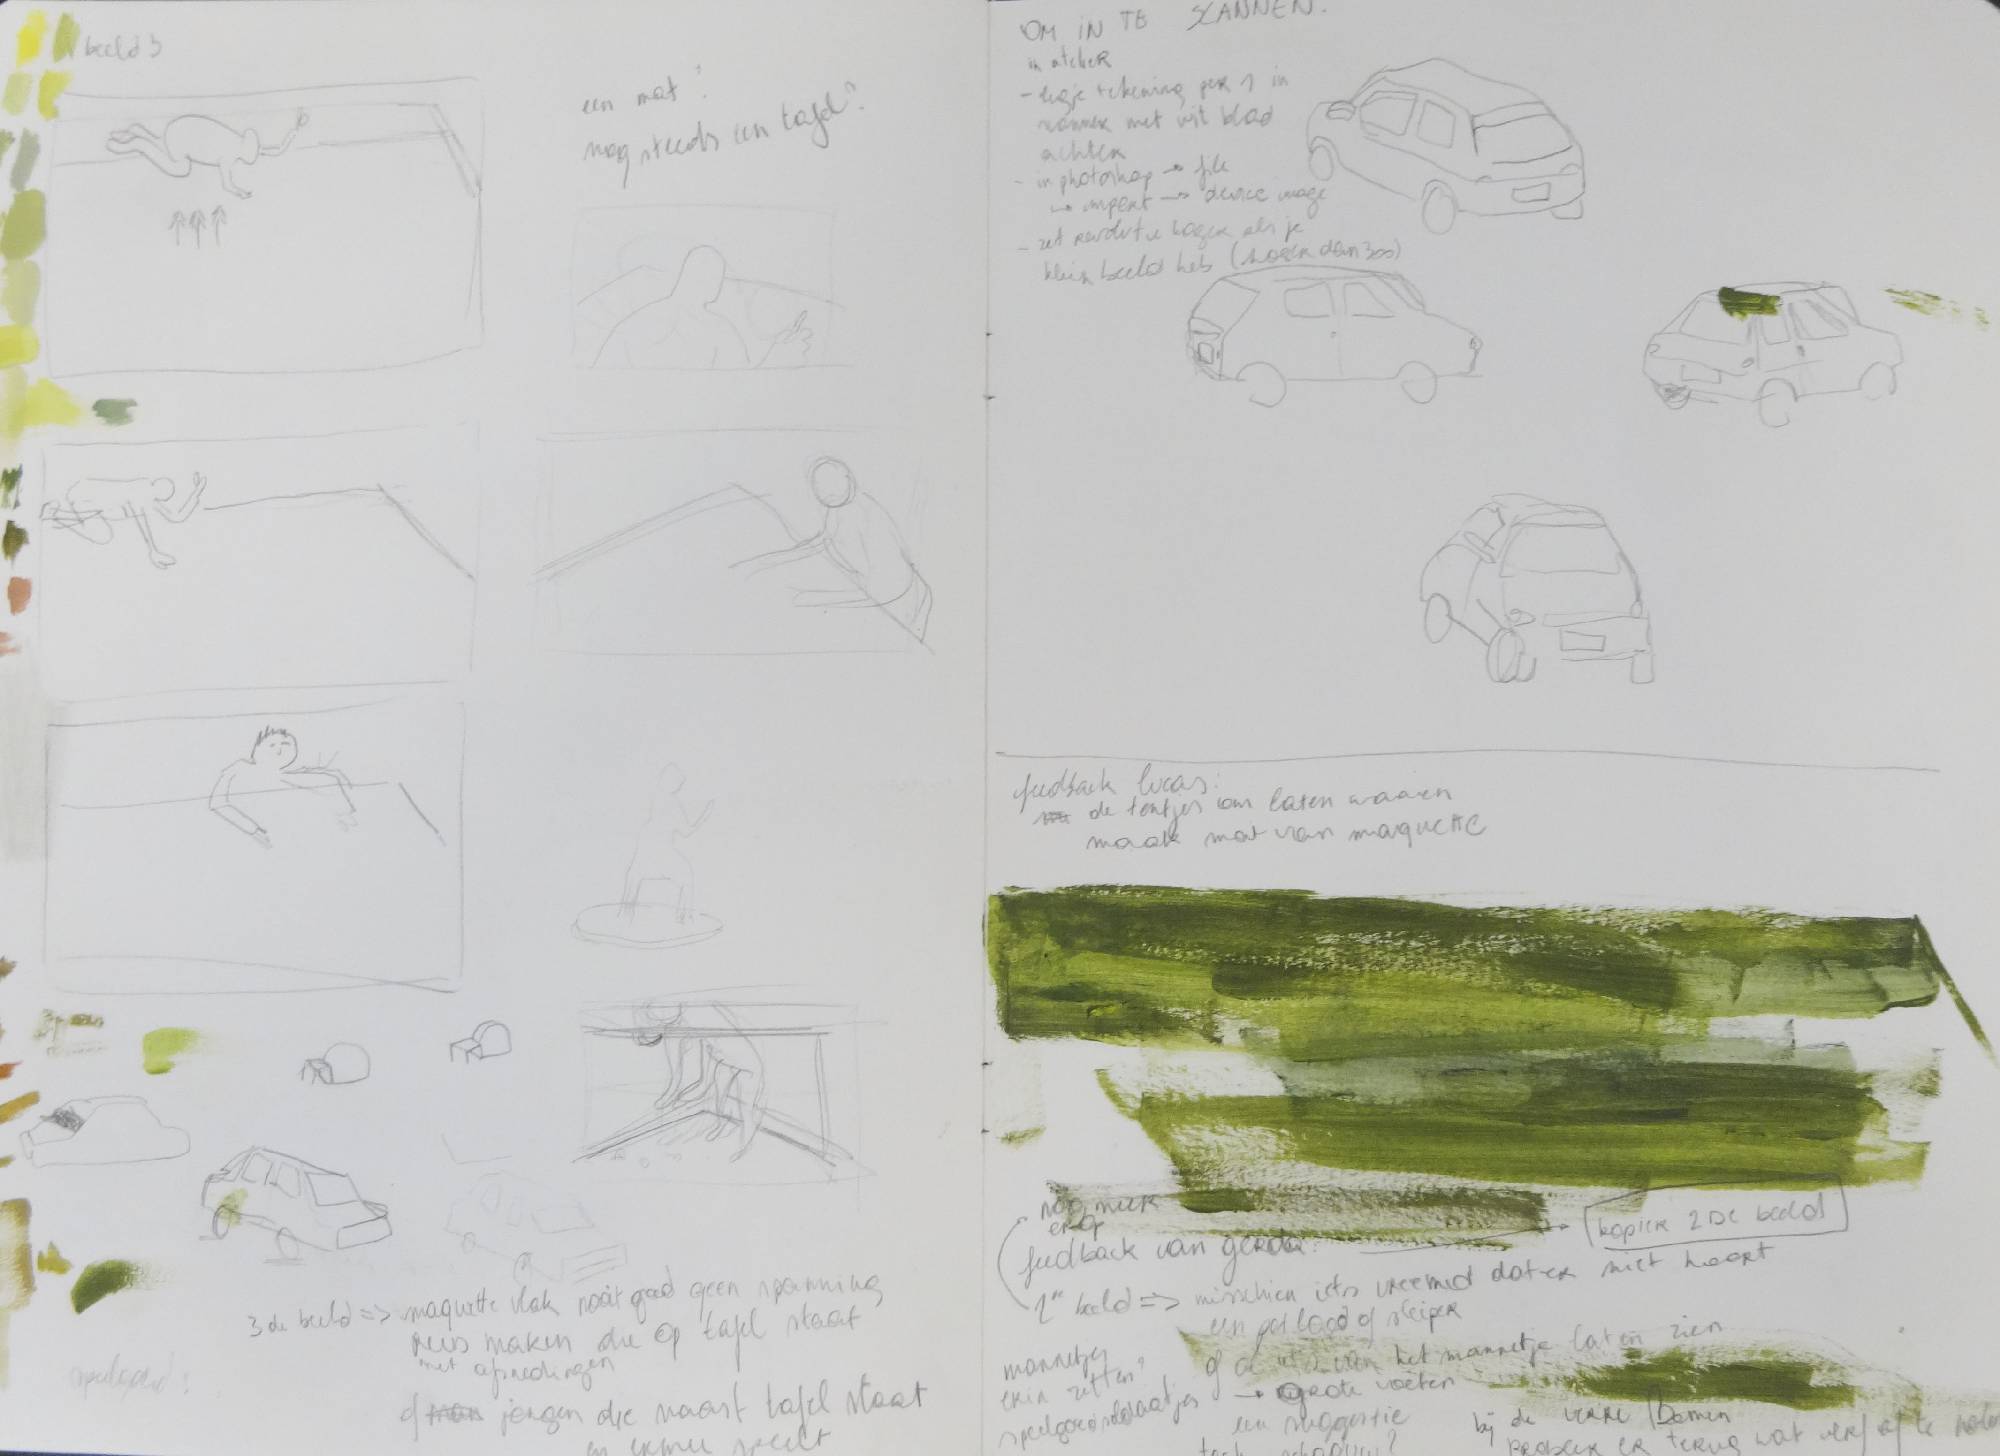 beeld 3
een mat?
nog steeds een tafel?
3de beeld => maquette vlak nooit goed geen spanning
reus maken die op tafel staat
met afmedingen
of jongen die naast tafel staat
en ermee speelt
speelgoed?
OM IN TE SCANNEN.
in atelier
- legje tekening per 1 in
scanner met wit blad
achter
- in photoshop → file
→ import → device image
- zet resolutie hoger als je
klein beeld heb (hoger dan 300)
feedback lucas:
de tentjes om laten waaien
maak mat van maquette
nog meer
erop
feedback van gerda:
kopier 2de beeld
1ste beeld => misschien iets vreemd dat er niet hoort
een potlood of sleiper
of de van het mannetje laten zien
→ grote voeten
een suggestie
mannetjes
erin zetten?
speelgoedsoldaatjes
bij de verre Bomen
probeer er terug wat verf af te halen